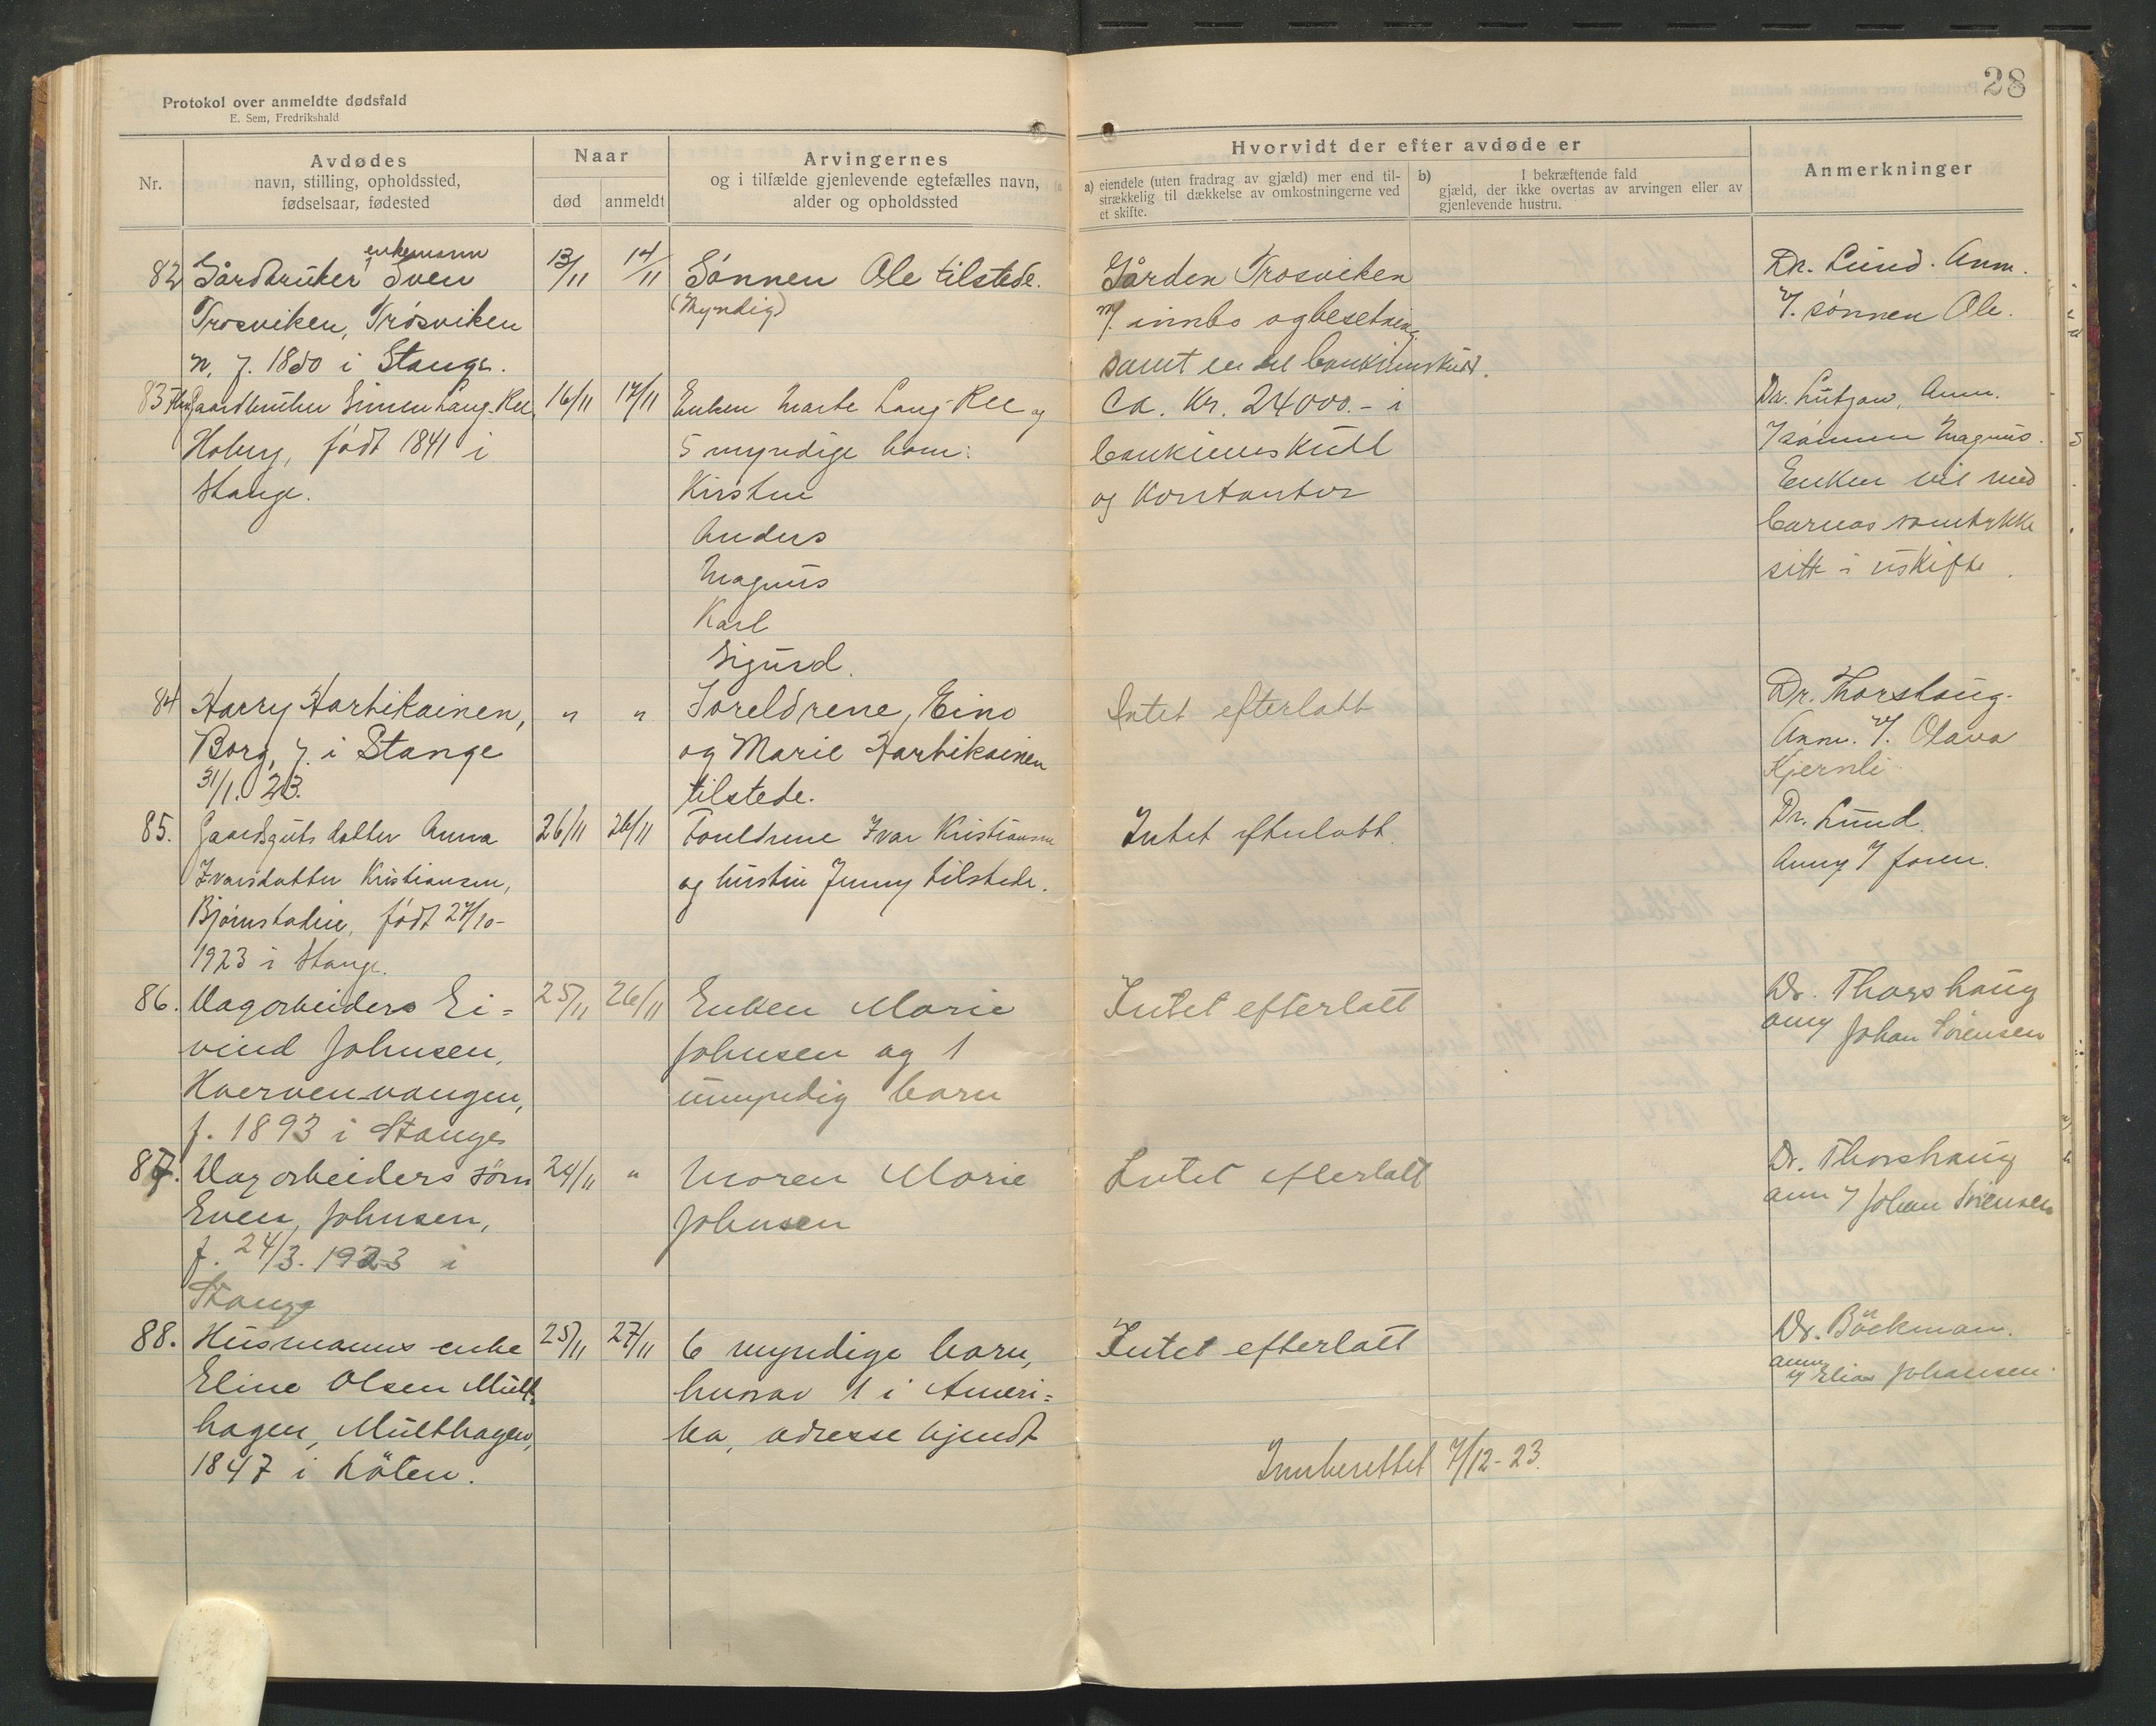 28
Protokol over anmeldte dødsfald
E. Sem, Fredrikshald
Nr.
Avdødes
navn, stilling, opholdssted,
fødselsaar, fødested
Naar
død
anmeldt
Arvingernes
og i tilfælde gjenlevende egtefælles navn,
alder og opholdssted
Hvorvidt der efter avdøde er
a) eiendele (uten fradrag av gjæld) mer end til-
strækkelig til dækkelse av omkostningerne ved
et skifte.
b) I bekræftende fald
gjæld, der ikke overtas av arvingen eller av
gjenlevende hustru.
Anmerkninger
82 Gårdbruker enkemann Sven
Trosviken, Trosviken
n, f. 1850 i Stange.
13/11
14/11
Sønnen Ole tilstede.
(Myndig)
Gården Trosviken
m/ innbo og besetning
samt en del bankinnskudd.
Dr. Lund. Anm.
v/ sønnen Ole.
83 Gaardbruker Simen Lang-Ree
Hoberg, født 1841 i
Stange.
16/11
17/11
Enken Marte Lang-Ree og
5 myndige barn:
Kirstine
Anders
Magnus
Karl
Sigurd.
Ca. Kr. 24000.- i
bankinnskudd
og kontanter
Dr. Lützow, Anm.
v/ sønnen Magnus.
Enken vil med
barnas samtykke
sitte i uskifte.
84 Harry Hartikainen,
Borg, f. i Stange
31/1. 23.
"
"
Foreldrene, Eino
og Marie Hartikainen
tilstede.
Intet efterlatt
Dr. Thorshaug.
Anm. v/ Olava
Kjernli
85. Gaardsguts datter Anna
Ivarsdatter Kristiansen,
Bjørnstadeie, født 27/10-
1923 i Stange.
26/11
26/11
Foreldrene Ivar Kristiansen
og hustru Jenny tilstede.
Intet efterlatt.
Dr. Lund.
Anm v/ faren.
86. Dagarbeiders Ei=
vind Johnsen,
Hvervenvangen,
f. 1893 i Stange
25/11
26/11
Enken Marie
Johnsen og 1
umyndig barn
Intet efterlatt
Dr. Thorshaug
anm v/ Johan Sörensen
87. Dagarbeiders sönn
Even Johnsen,
f. 24/3. 1923 i
Stange
24/11
"
Moren Marie
Johnsen
Intet efterlatt
Dr. Thorshaug
anm v/ Johan Sörensen
88. Husmanns enke
Eline Olsen Mült=
hagen, Mülthagen,
1847 i Löten.
25/11
27/11
6 myndige barn,
hvorav 1 i Ameri=
ka, adresse kjendt
Intet efterlatt
Dr. Böckman.
anm
v/ Elias Johansen.
Innberettet 7/12-23.